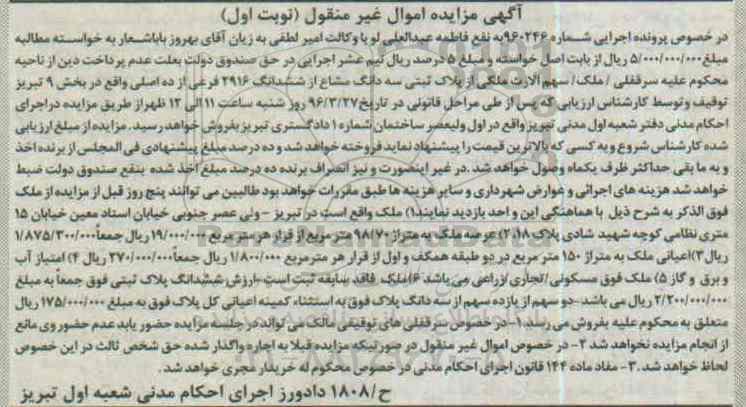 آگهی مزایده اموال غیر منقول (نوبت اول)
در خصوص پرونده اجرایی شماره ۹۶۰۲۴۶ به نفع فاطمه عبدالعلی لو با وکالت امیر لطفی به زیان آقای بهروز باباشعار به خواسته مطالبه
مبلغ ۵/۰۰۰/۰۰۰/۰۰۰ ریال از بابت اصل خواسته و مبلغ ۵ درصد ریال نیم عشر اجرایی در حق صندوق دولت بعلت عدم پرداخت دین از ناحیه
محکوم علیه سرقفلی / ملک/ سهم الارث ملکی از پلاک ثبتی سه دانگ مشاع از ششدانگ ۲۹۱۶ فرعی از ده اصلی واقع در بخش ۹ تبریز
توقیف و توسط کارشناس ارزیابی که پس از طی مراحل قانونی در تاریخ ۹۶/۳/۲۷ روز شنبه ساعت ۱۱ الی ۱۲ ظهر از طریق مزایده در اجرای
احکام مدنی دفتر شعبه اول مدنی تبریز واقع در اول ولیعصر ساختمان شماره ۱ دادگستری تبریز بفروش خواهد رسید. مزایده از مبلغ ارزیابی
شده کارشناس شروع و به کسی که بالاترین قیمت را پیشنهاد نماید فروخته خواهد شد و ده درصد مبلغ پیشنهادی فی المجلس از برنده اخذ
و به ما بقی حداکثر ظرف یکماه وصول خواهد شد. در غیر اینصورت و نیز انصراف برنده ده درصد مبلغ اخذ شده بنفع صندوق دولت ضبط
خواهد شد هزینه های اجرائی و عوارض شهرداری و سایر هزینه ها طبق مقررات خواهد بود طالبین می توانند پنج روز قبل از مزایده از ملک
فوق الذکر به شرح ذیل با هماهنگی این واحد بازدید نمایند ۱) ملک واقع است در تبریز - ولی عصر جنوبی خیابان استاد معین خیابان ۱۵
متری نظامی کوچه شهید شادی پلاک ۱۸، ۲) عرصه ملک به متراژ ۹۸/۷۰ متر مربع از قرار هر متر مربع ۱۹/۰۰۰/۰۰۰ ریال جمعاً ۱/۸۷۵/۳۰۰/۰۰۰
ریال ۳) اعیانی ملک به متراژ ۱۵۰ متر مربع در دو طبقه همکف و اول از قرار هر متر مربع ۱/۸۰۰/۰۰۰ ریال جمعاً ۲۷۰/۰۰۰/۰۰۰ ریال ۴) امتیاز آب
و برق و گاز ۵) ملک فوق مسکونی/تجاری/زراعی می باشد ۶) ملک فاقد سابقه ثبت است - ارزش ششدانگ پلاک ثبتی فوق جمعاً به مبلغ
۲/۲۰۰/۰۰۰/۰۰۰ ریال می باشد - دو سهم از یازده سهم از سه دانگ پلاک فوق به استثناء کمینه اعیانی کل پلاک فوق به مبلغ ۱۷۵/۰۰۰/۰۰۰ ریال
متعلق به محکوم علیه بفروش می رسد. ۱- در خصوص سرقفلی های توقیفی مالک می تواند در جلسه مزایده حضور یابد عدم حضور وی مانع
از انجام مزایده نخواهد شد ۲- در خصوص اموال غیر منقول در صورتیکه مزایده قبلا به اجاره واگذار شده حق شخص ثالث در این خصوص
لحاظ خواهد شد. ۳- مفاد ماده ۱۴۴ قانون اجرای احکام مدنی در خصوص محکوم له خریدار مجری خواهد شد.
ح/۱۸۰۸ دادورز اجرای احکام مدنی شعبه اول تبریز
ParsNamadData